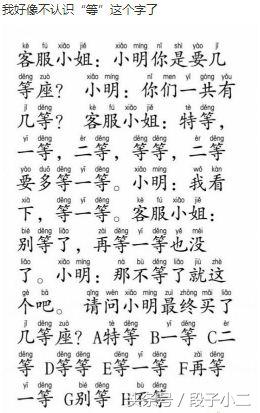 我好像不认识“等”这个字了
kè fú xiǎo jiě xiǎo míng nǐ shì yào jǐ
客服小姐：小明你是要几
děng zuò xiǎo míng nǐ men yī gòng yǒu
等座？ 小明：你们一共有
jǐ děng kè fú xiǎo jiě tè děng
几等？ 客服小姐：特等，
yī děng èr děng děng děng èr děng
一等，二等，等等，二等
yào duō děng yī děng xiǎo míng wǒ kàn
要多等一等。小明：我看
xià děng yī děng kè fú xiǎo jiě
下，等一等。客服小姐：
bié děng le zài děng yī děng yě méi
别等了，再等一等也没
le xiǎo míng nà bù děng le jiù zhè
了。小明：那不等了就这
gè ba qǐng wèn xiǎo míng zuì zhōng mǎi le
个吧。 请问小明最终买了
jǐ děng zuò tè děng yī děng èr
几等座？A特等 B一等 C二
děng děng děng děng yī děng zài děng
等 D等等 E等一等 F再等
yī děng bié děng bù děng
一等 G别等 H不等
头条号／段子小二